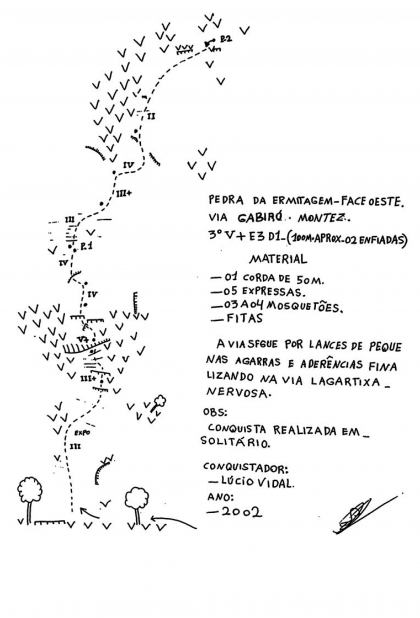 P.2
II
IV
III+
III
P.1
IV
IV
V+
III+
EXPO
III
PEDRA DA ERMITAGEM-FACE OESTE.
VIA GABIRÚ. MONTEZ.
3° V+ E3 D1-(100M.APROX.02 ENFIADAS)
MATERIAL
—01 CORDA DE 50M.
—05 EXPRESSAS.
—03 A 04 MOSQUETÕES.
—FITAS
A VIA SEGUE POR LANCES DE PEQUE
NAS AGARRAS E ADERÊNCIAS FINA
LIZANDO NA VIA LAGARTIXA_
NERVOSA.
OBS:
CONQUISTA REALIZADA EM_
SOLITÁRIO.
CONQUISTADOR:
—LÚCIO VIDAL.
ANO:
—2002